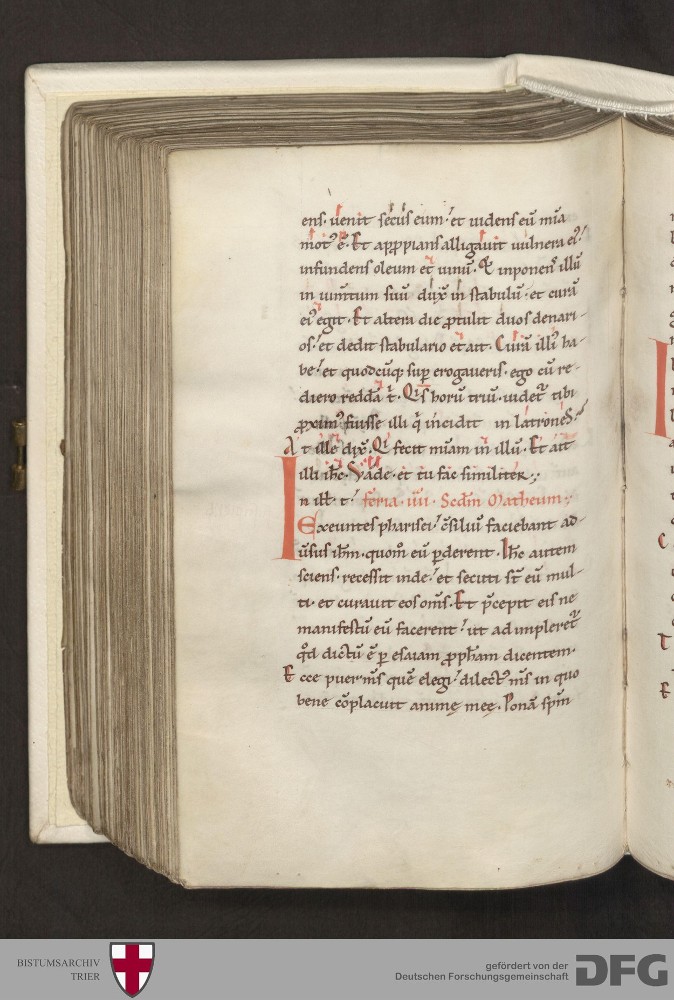 ens. uenit secus eum. et uidens eū mīa
mot᷒ ē. Et appropians alligauit uulnera ei᷒.
infundens oleum et uinū. & inponens illū
in iumtum suū duxͭ in stabulū. et curā
ei᷒ egit. Et altera die ꝓtulit duos denari-
os. et dedit stabulario et ait. Curā illi᷒ ha-
be. et quodcūq; sup erogaueris. ego cū re-
diero reddā t̄. Qͥs horū triū. uidetͬ tibi
ꝓxim᷒ fuisse illi q̄ incidit in latrones.
At ille dixͭ. Qͥ fecit mīam in illū. Et ait
illi ih̄c. Vade. et tu fac similiter.
In ill̄ t̄. feria. iiii. Scd̄m Matheum.
Exeuntes pharisei. c̄siliū faciebant ad-
ūsus ih̄m. quom̄ eū ꝑderent. Ih̄c autem
sciens. recessit inde. et secuti st̄ eū mul-
ti. et curauit eos om̄s. Et p̄cepit eis ne
manifestū eū facerent. ut adimpleretͬ
qd̄ dictū ē ꝑ esaiam ꝓph̄am dicentem.
Ecce puer m̄s quē elegi. dilect᷒ m̄s in quo
bene cōplacuit animę męę. Ponā sp̄m
BISTUMSARCHIV
TRIER
gefördert von der
Deutschen Forschungsgemeinschaft
DFG